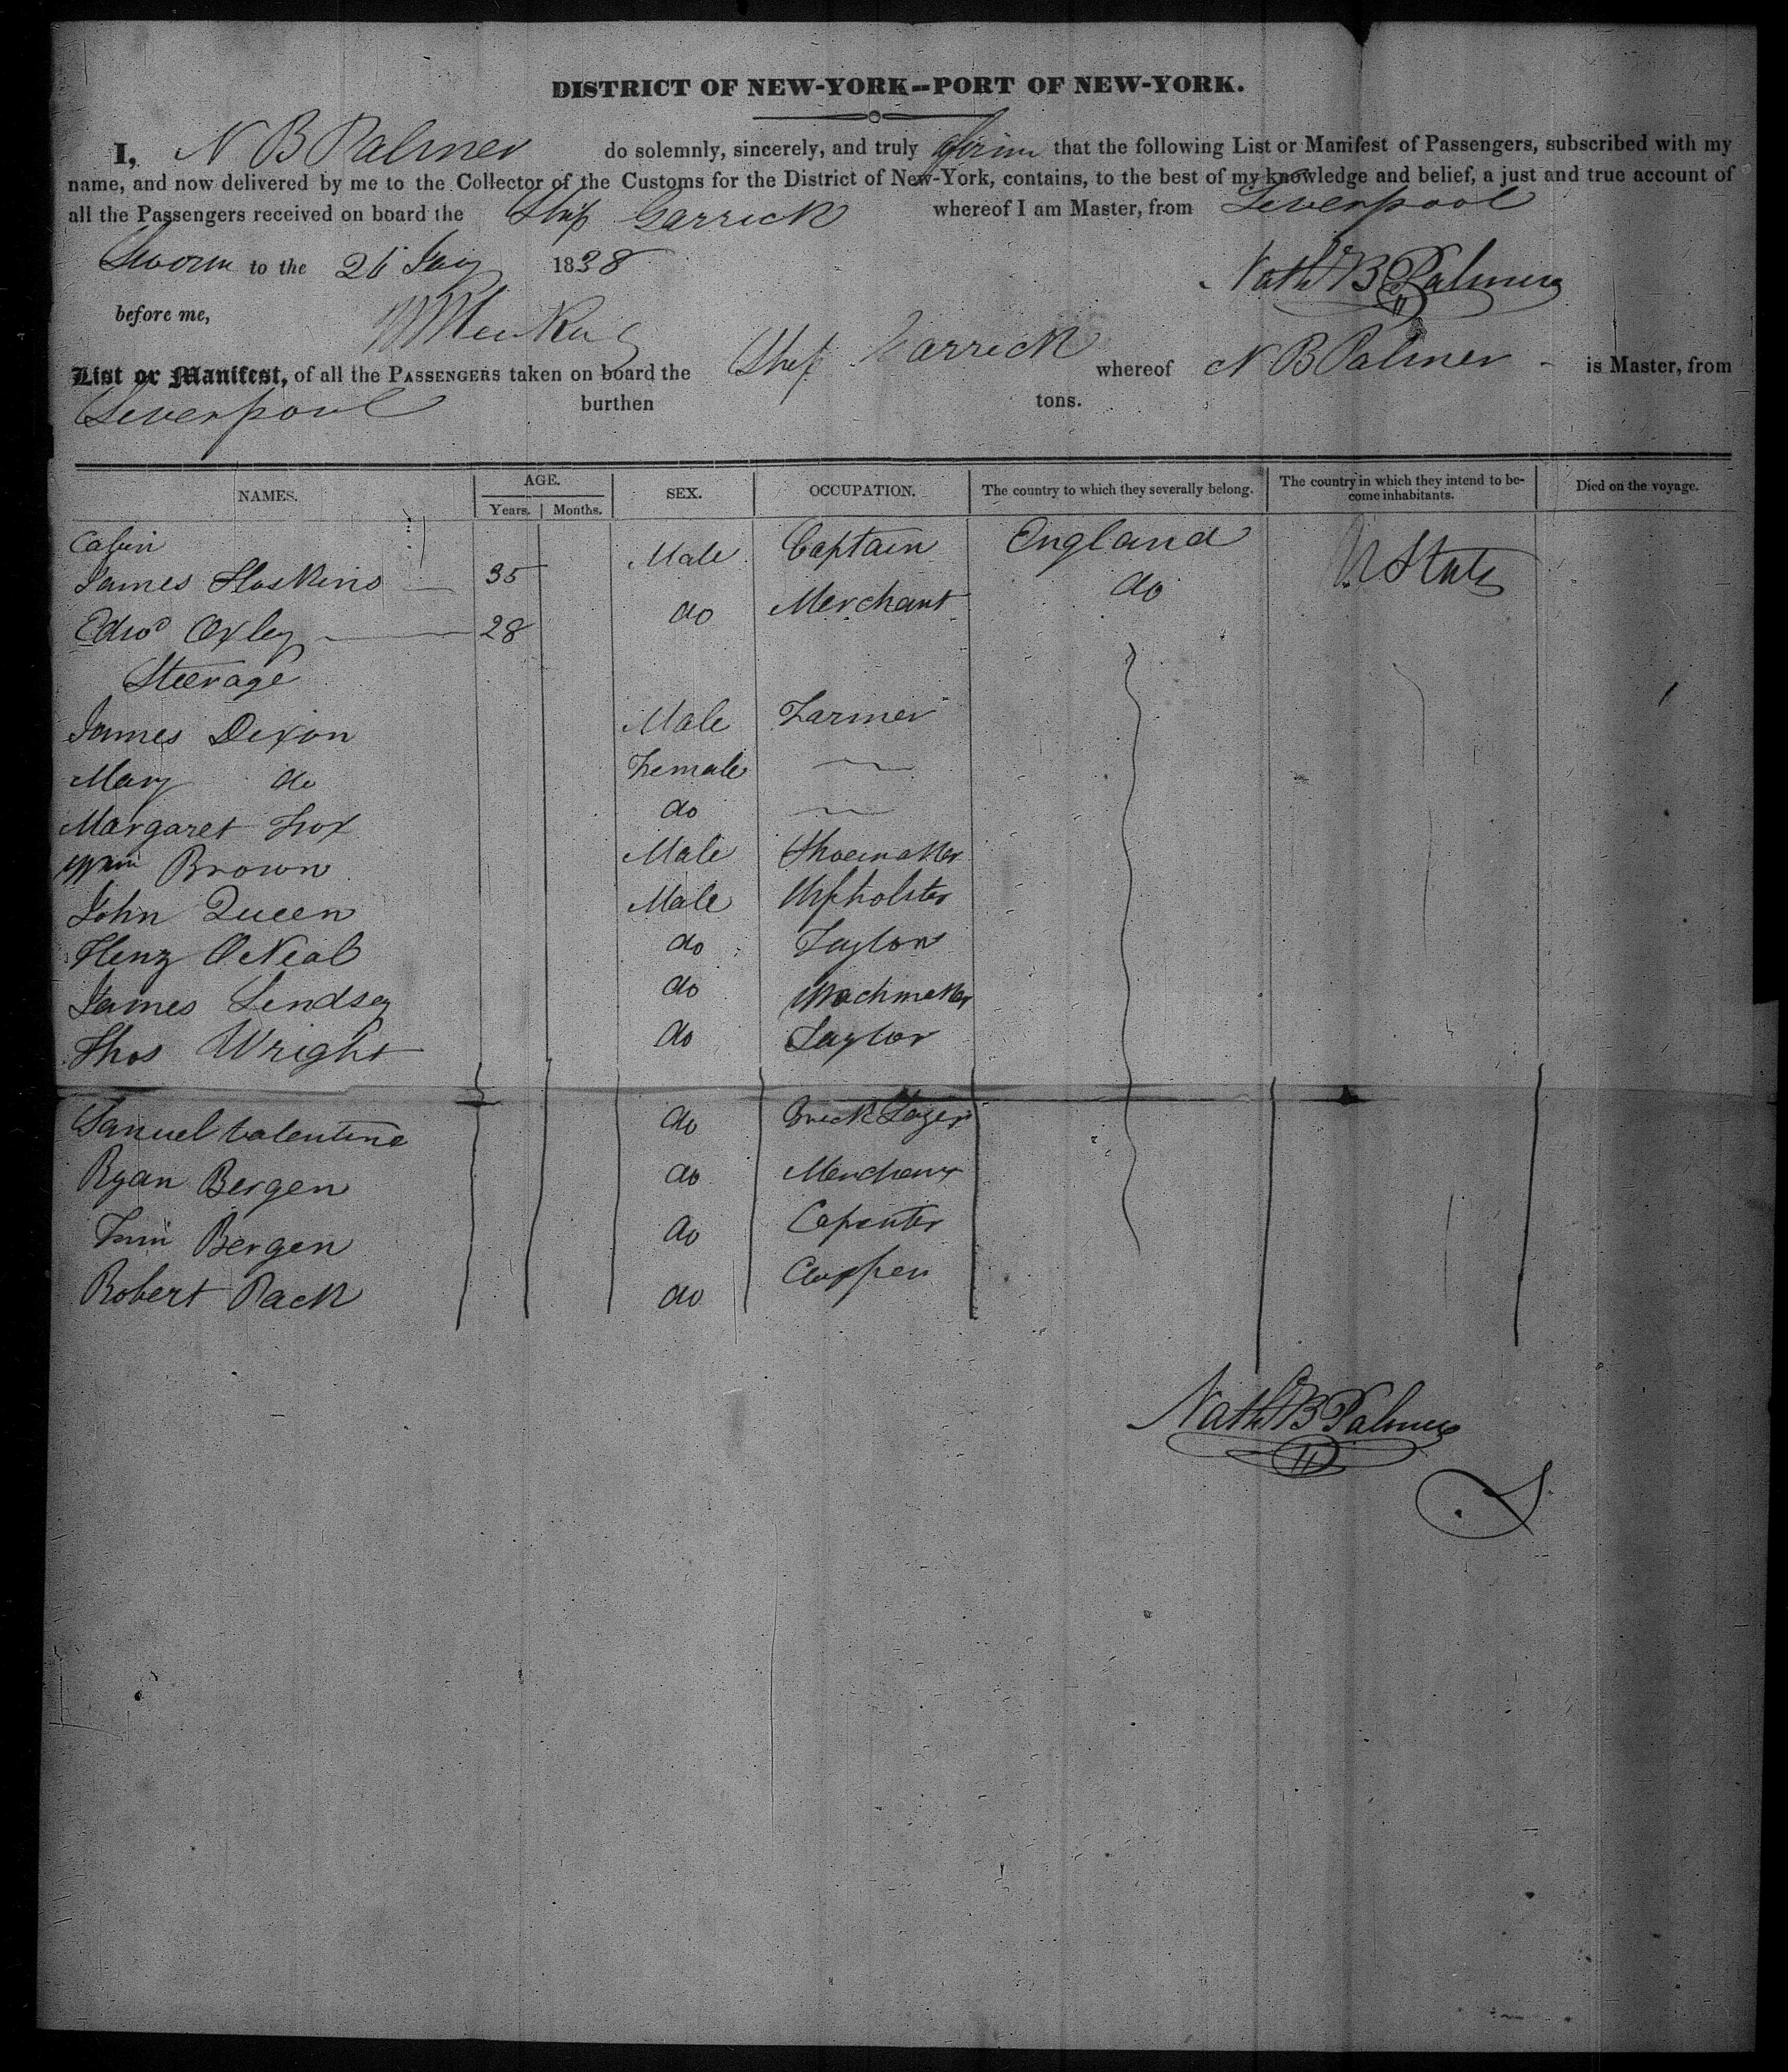 DISTRICT OF NEW-YORK--PORT OF NEW-YORK.
I, N B Palmer do solemnly, sincerely, and truly affirm that the following List or Manifest of Passengers, subscribed with my
name, and now delivered by me to the Collector of the Customs for the District of New-York, contains, to the best of my knowledge and belief, a just and true account of
all the Passengers received on board the Ship Garrick whereof I am Master, from Liverpool
Sworn to the 26 Jany 1838 Nathl B Palmer
before me,
List or Manifest, of all the PASSENGERS taken on board the Ship Garrick whereof N B Palmer - is Master, from
Liverpool burthen tons.
NAMES. AGE. Years. Months. SEX. OCCUPATION. The country to which they severally belong. The country in which they intend to be-
come inhabitants. Died on the voyage.
Cabin
James Hoskins 35 Male Captain England U States
Edwd Oxley 28 do Merchant do
Steerage
James Dixon Male Farmer
Mary do Female
Margaret Fox do
Wm Brown Male Shoemaker
John Queen Male Upholster
Heny O Neal do Taylor
James Lindsey do
Thos Wright do Taylor
Samuel Valentine do Brick Layer
Ryan Bergen do Merchant
Bergen do Capenter
Robert Pack do
Nathl B Palmer